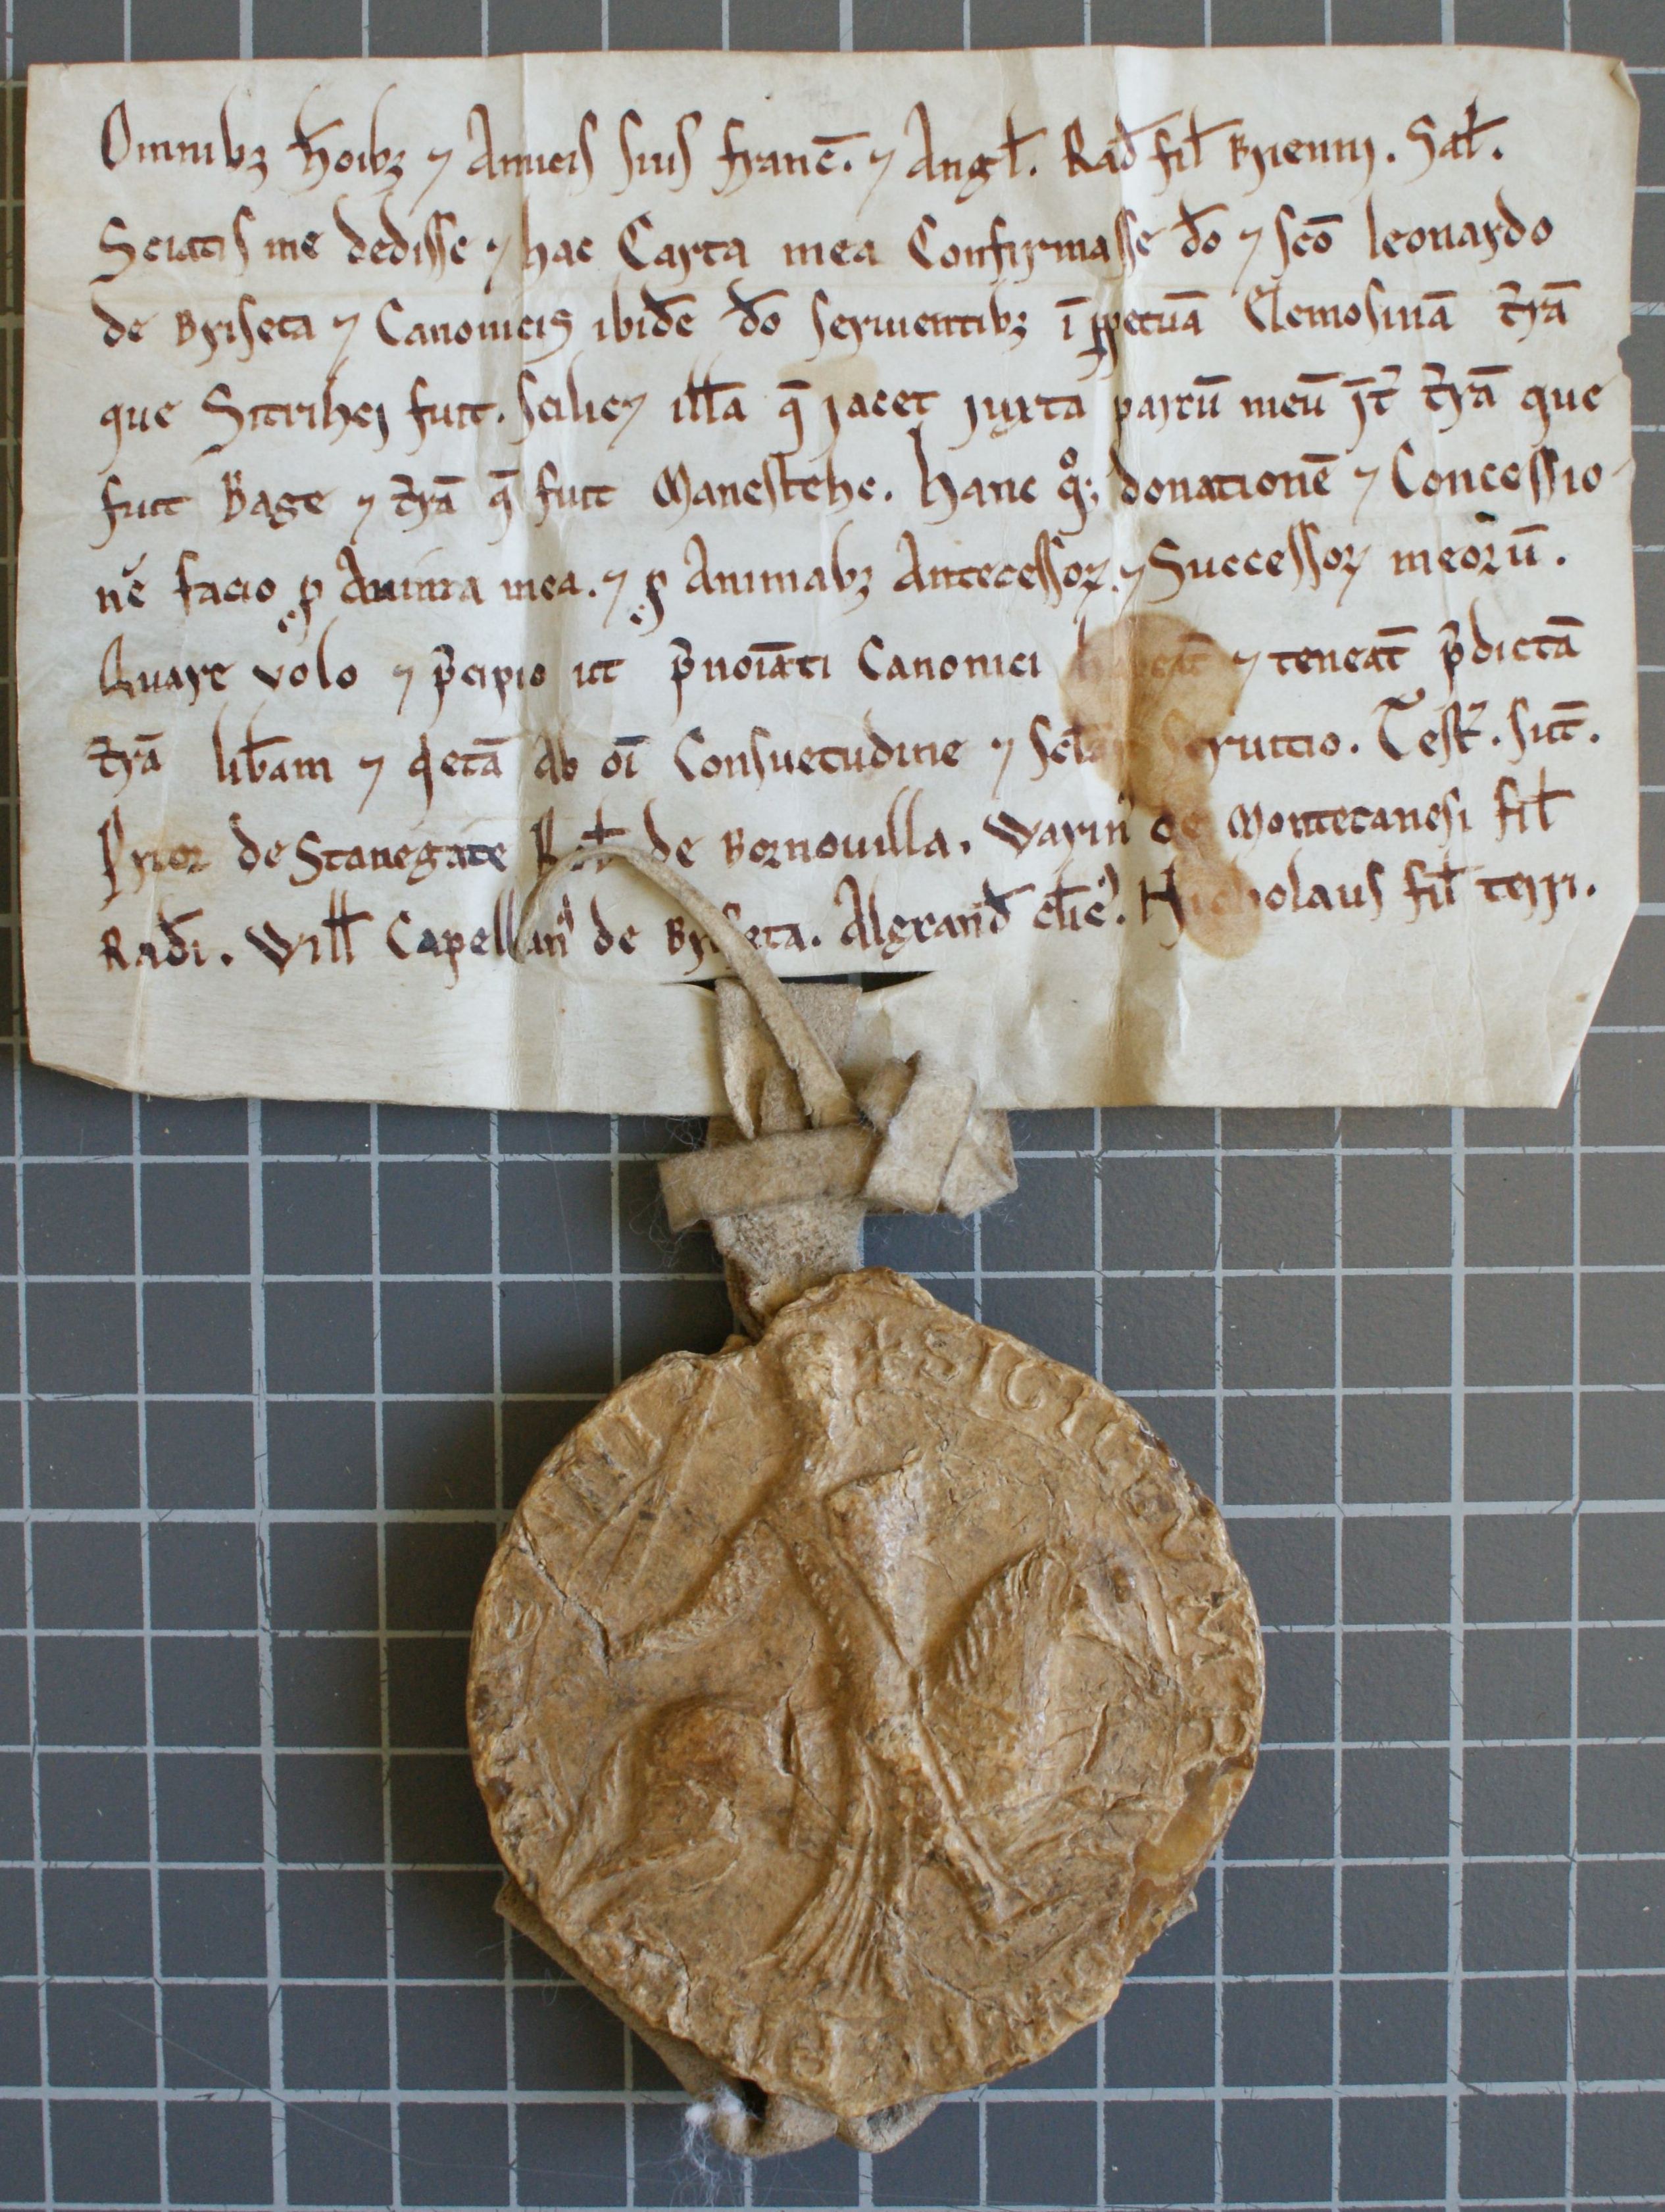 Omnibꝫ hoı̅bꝫ ⁊ Amicis suis franc̅. ⁊ Angł. Rad̅ fił Brienni. Sał.
Sciatis me dedisse ⁊ hac Carta mea Confirmasse do̅ ⁊ sc̅o leonardo
de Briseta ⁊ Canonicis ibide̅ do̅ seruientibꝫ i̅ ꝑpetua̅ Elemosina̅ t̅ra̅
que Stirihei fuit. scilic⁊ illa̅ q̅ jacet juxta parcu̅ meu̅ i̅t̅ t̅ra̅ que
fuit Bage ⁊ t̅ra̅ q̅ fuit Manestehe. hanc qͦꝫ donatione̅ ⁊ Concessio
ne̅ facio ꝓ Anima mea. ⁊ ꝓ Animabꝫ Antecessoꝝ. ⁊ Successoꝝ meoru̅.
Quare volo ⁊ p̅cipio ut p̅noı̅ati Canonici habeat̅ ⁊ teneat̅ p̅dicta̅
t̅ra̅ lib̅am ⁊ q̇eta̅ ab oı̅ Consuetudine ⁊ sc̅łari seruitio. Test̅. sut̅.
Prior de Stanegate Rob̅ de Bornouilla. Warin᾽ de Montecanesi fił
Rad̅i. Willl Capellan᾽ de Briseta. Algrand̅ cl̅ic᾽. Nicholaus fił terri.
SIGILLVM R